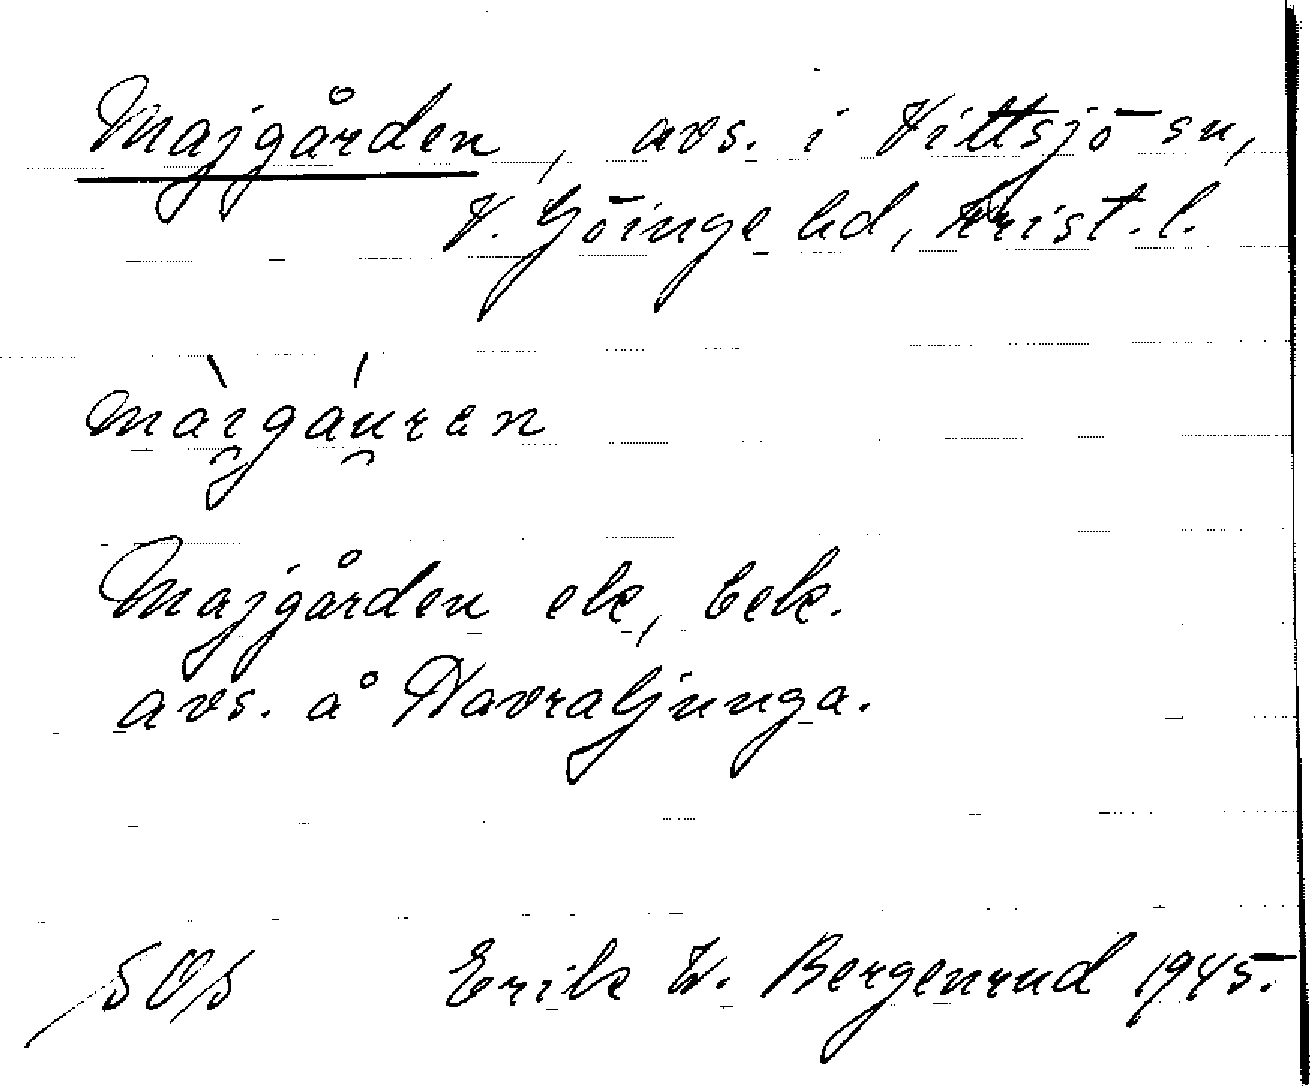 Majgården, avs. i Vittsjö sn,
V. Göinge hd, Krist. l.
màigáuren
Majgården ek, bek.
avs. å Havraljunga.
SOS Erik W. Bergenrud 1945.